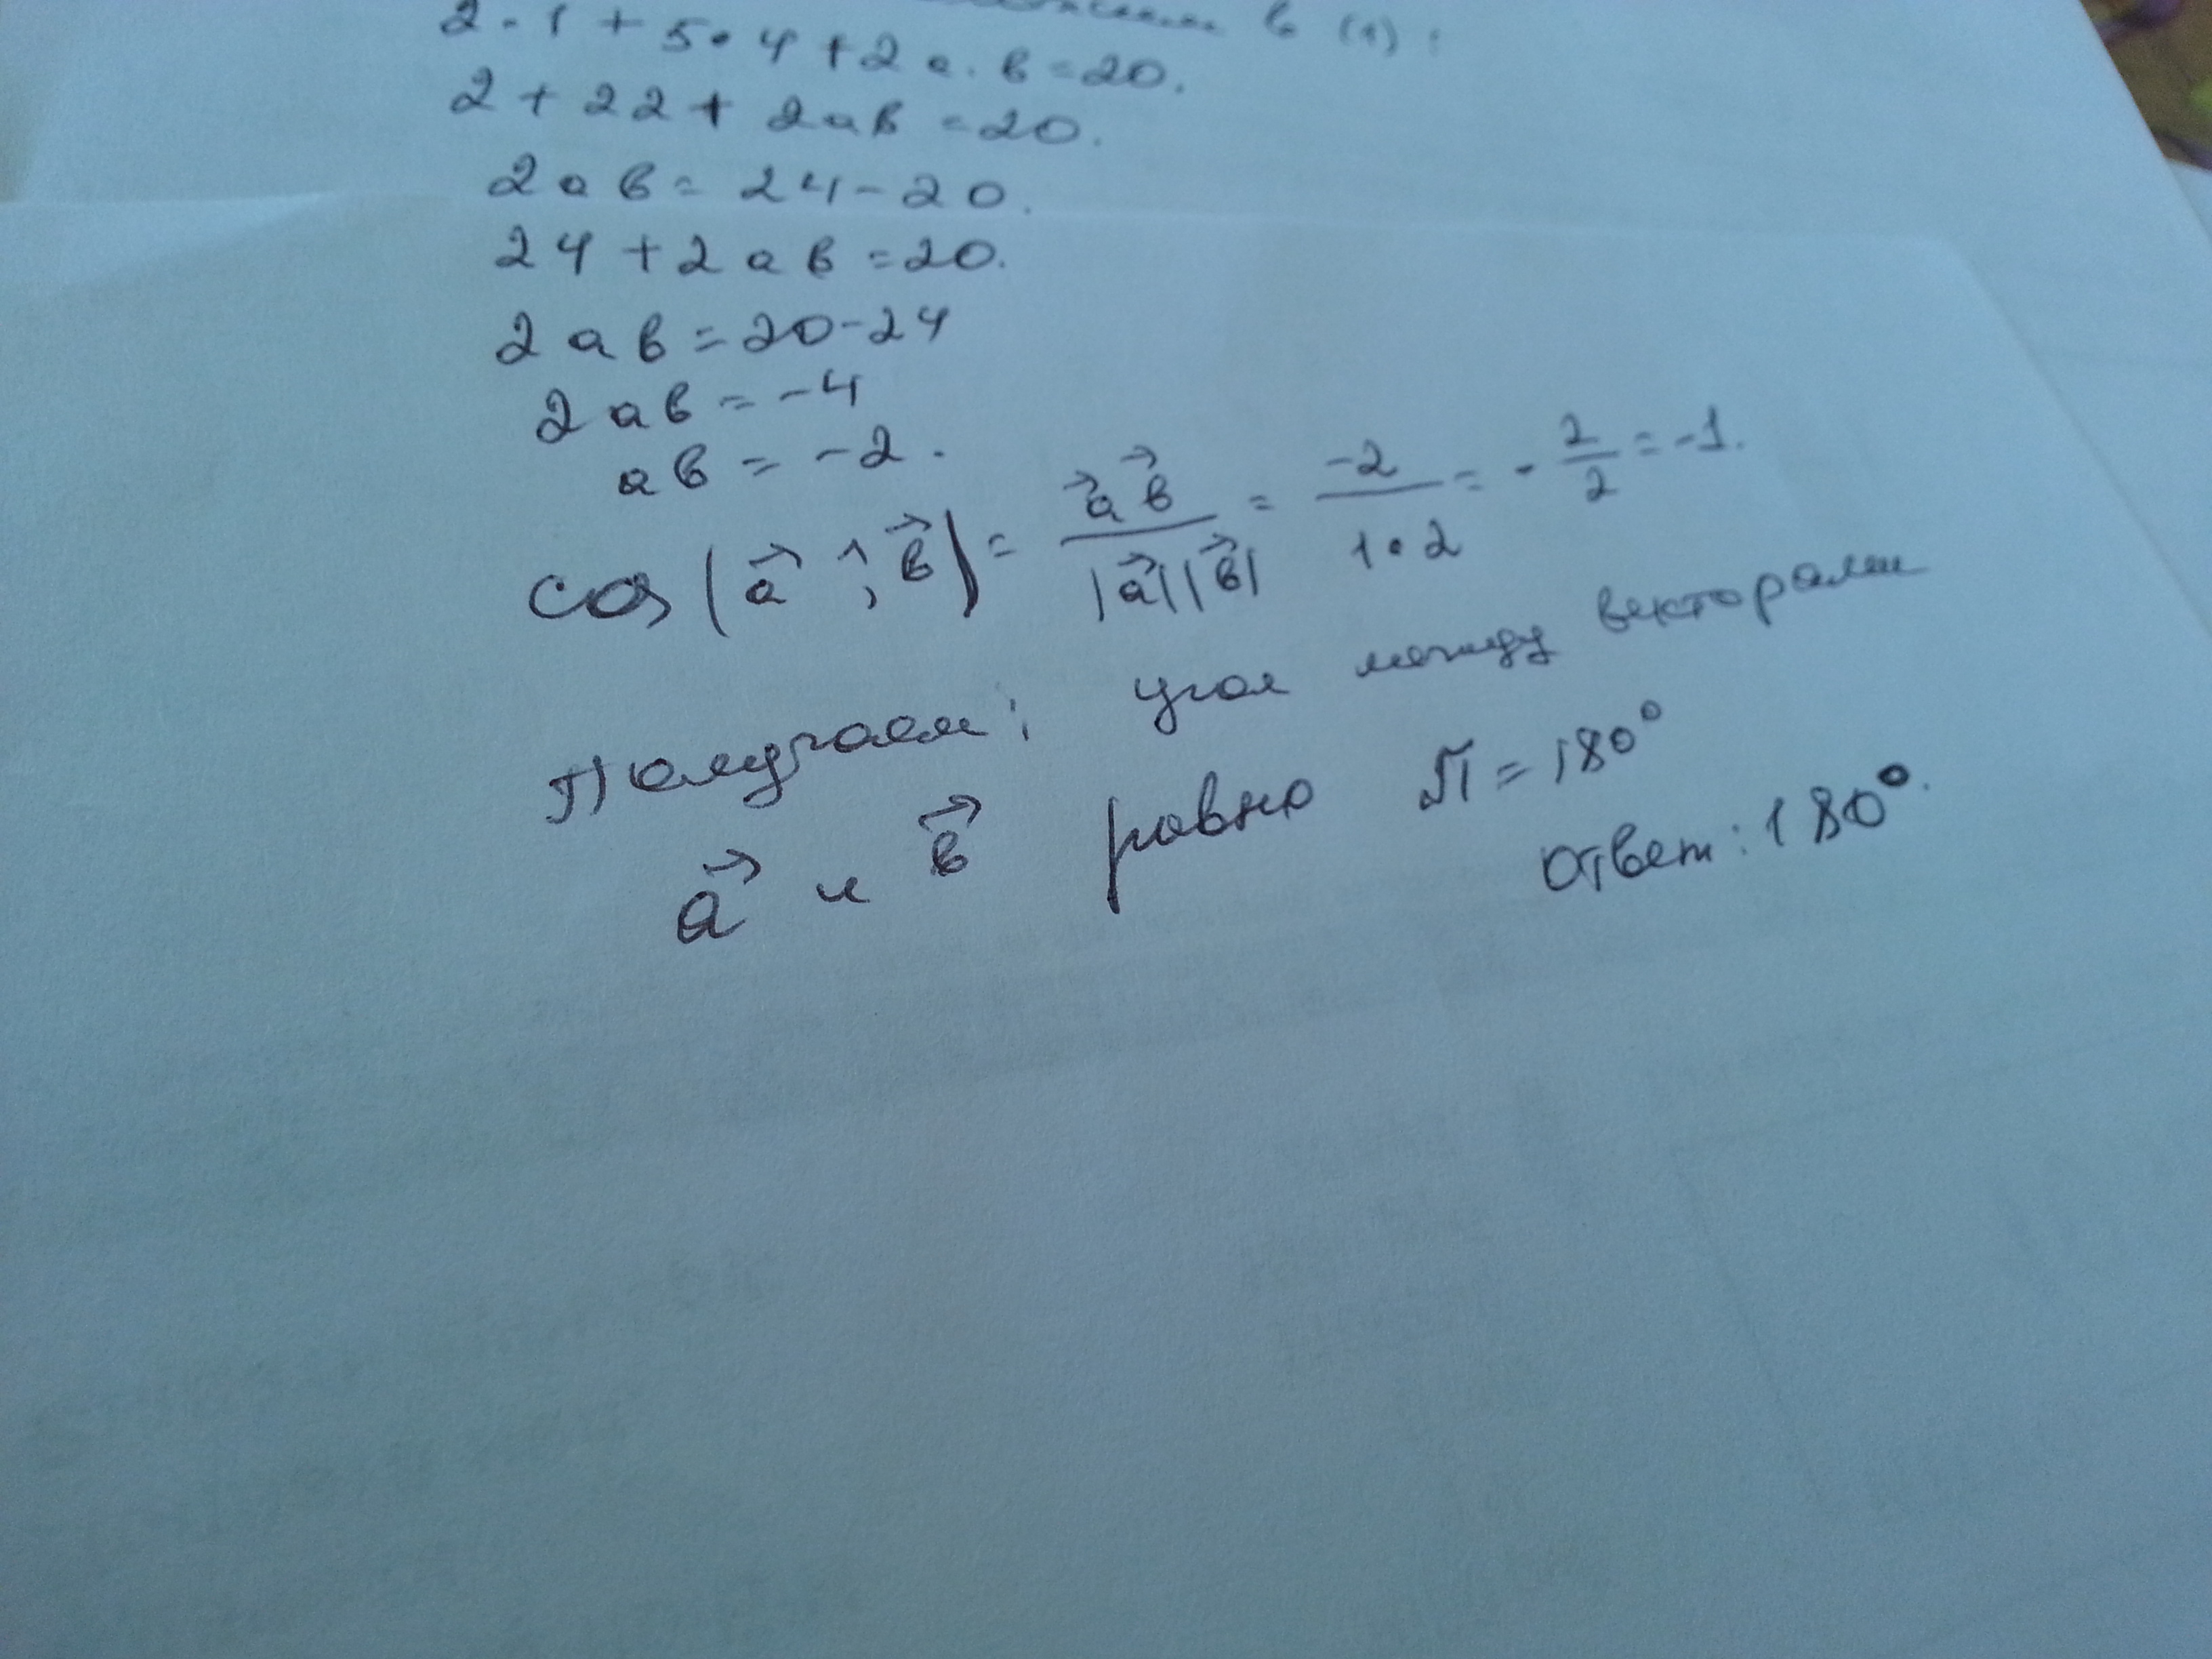 в (1):
2·1 + 5·4 + 2а·в = 20.
2 + 22 + 2ав = 20.
2ав = 24 - 20.
24 + 2ав = 20.
2ав = 20 - 24
2ав = -4
ав = -2.
cos(a⃗ ^, в⃗) = a⃗ в⃗ / |a⃗||в⃗| = -2 / 1·2 = - 2/2 = -1.
Получаем: угол между векторами
a⃗ и в⃗ равно π = 180°
Ответ: 180°.